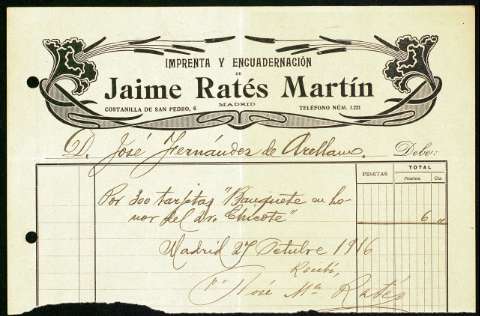 IMPRENTA Y ENCUADERNACIÓN
DE
Jaime Ratés Martín
MADRID
COSTANILLA DE SAN PEDRO, 6
TELÉFONO NÚM. 1.221
D. José Fernández de Arellano. Debe:
PESETAS TOTAL
Pesetas Cts.
Por 300 tarjetas "Banquete en ho-
nor del dr. Chicote" 6
Madrid 27 Octubre 1916
Recibí,
José Mª Ratés